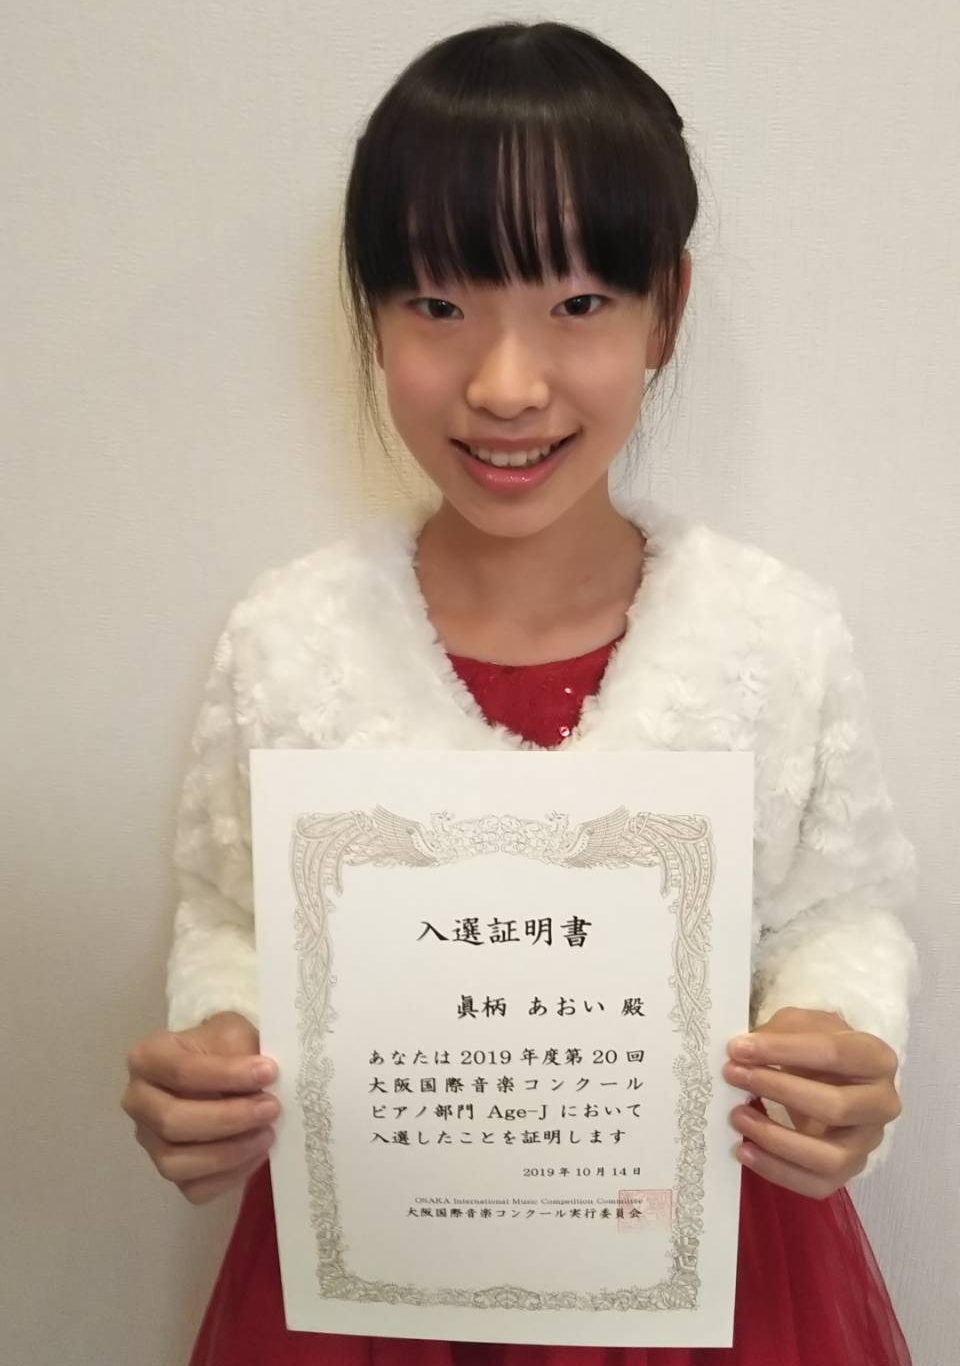 入選証明書
眞柄 あおい 殿
あなたは 2019 年度第 20 回
大阪国際音楽コンクール
ピアノ部門 Age-J において
入選したことを証明します
2019 年 10 月 14 日
OSAKA International Music Competition Committee
大阪国際音楽コンクール実行委員会